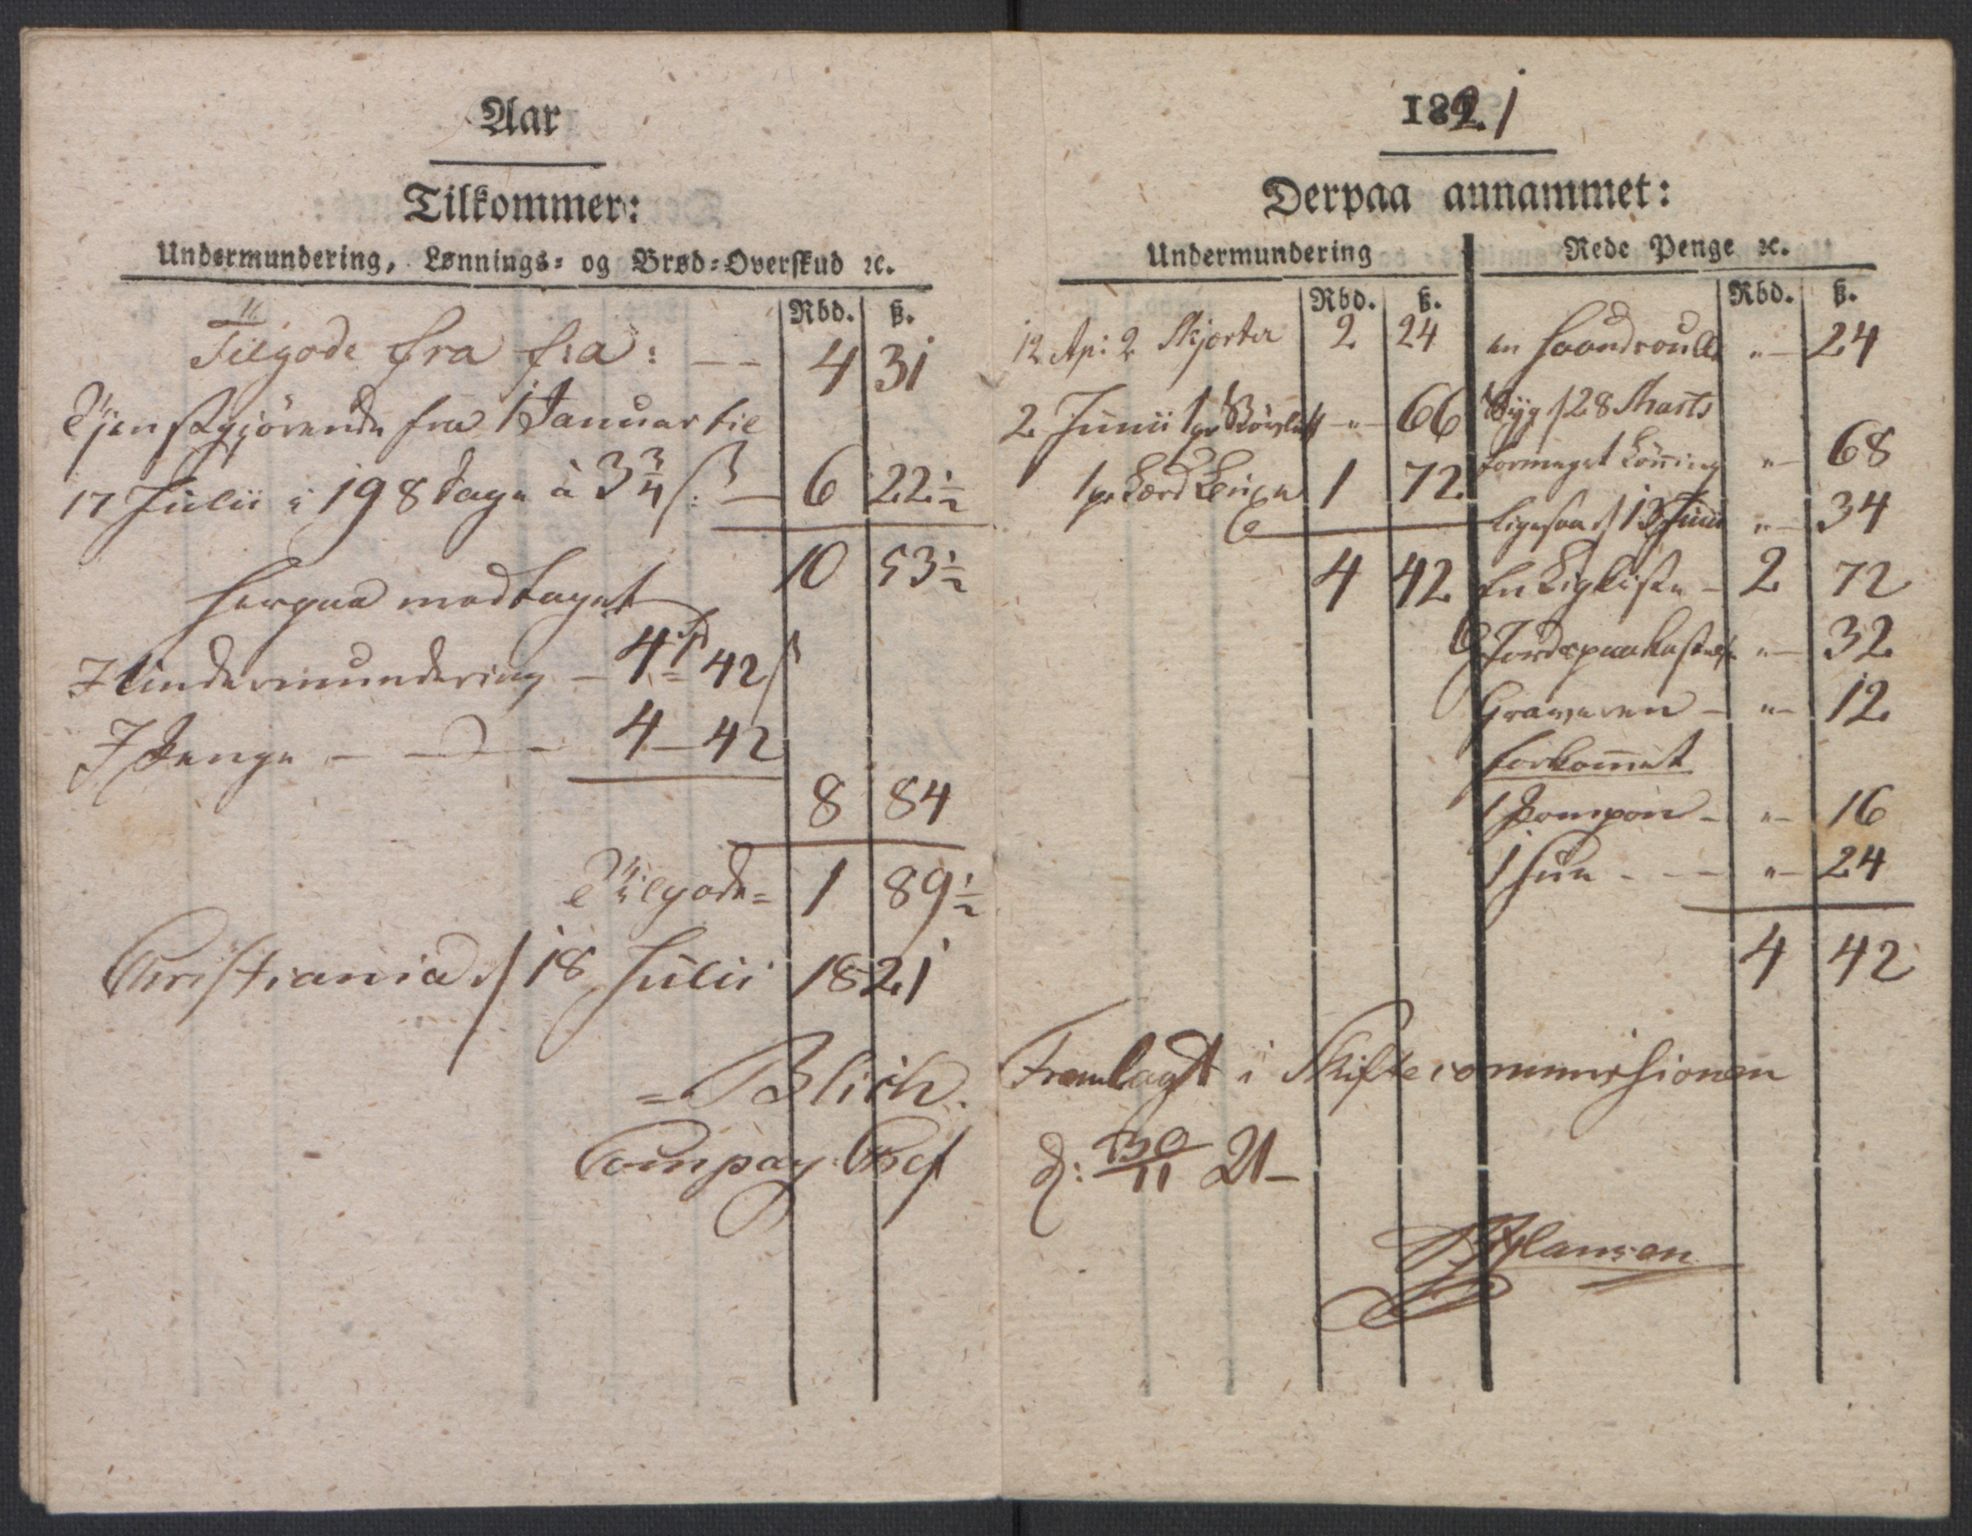 Aar
Tilkommer:
Undermundering, Lønnings- og Brød-Overskud ꝛc.
Rbd. ß.
Tilgode fra fra: — 4 31
Tjenstgjørende fra 1 Januar til
17 Julii i 198 Dage à 3 3/4 ß: — 6 22 1/2
10 53 1/2
herpaa modtaget
I Undermundering — 4 42 ß
I Penge — — — 4 — 42
8 84
Tilgode = 1 89 1/2
Christiania d 18 Julii 1821
Blich.
Compag: Chef
1821
Derpaa annammet:
Undermundering
Rbd. ß.
12 Ap: 2 Skjorter 2 24
2 Junii 1 pr — " — 66
1 pr 1 72
4 42
Rede Penge ꝛc.
Rbd. ß.
en " — 24
Syg d 28 Marts
formeget Lønning " — 68
Ligesaa d 13 Junii " — 34
En Ligkiste — 2 72
Jordspaakastelse " — 32
Graveren — " — 12
forkommet
1 Pompon — " — 16
1 Hue — — " — 24
4 42
Fremlagt i Skiftecommissionen
d: 30/11 21 —
Hansen